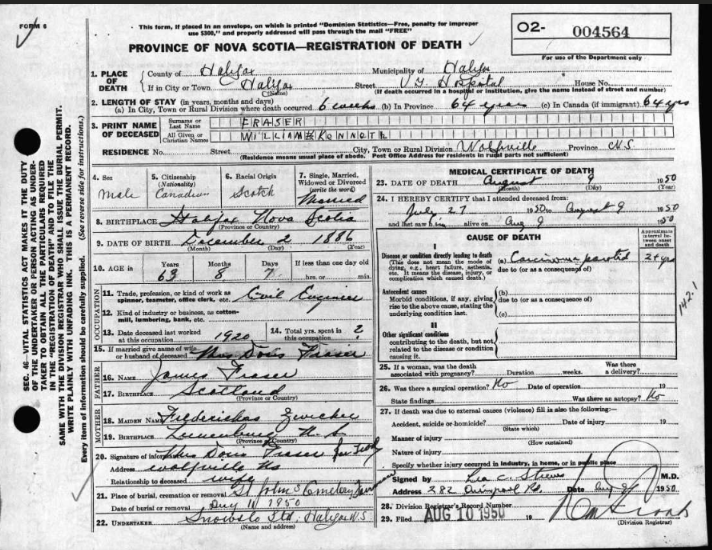 FORM 8
This form, if placed in an envelope, on which is printed "Dominion Statistics—Free, penalty for improper
use $300," and properly addressed will pass through the mail "FREE"
O2- 004564
For use of the Department only
PROVINCE OF NOVA SCOTIA—REGISTRATION OF DEATH
1. PLACE OF DEATH
County of Halifax Municipality of Halifax
If in City or Town Halifax Street V.G. Hospital House No.
(Name) (If death occurred in a hospital or institution, give the name instead of street and number)
2. LENGTH OF STAY (in years, months and days)
(a) In City, Town or Rural Division where death occurred 6 weeks (b) In Province 64 years (c) In Canada (if immigrant) 64 yrs
3. PRINT NAME OF DECEASED
Surname or Last Name FRASER
All Given or Christian Names WILLIAM KENNETH
RESIDENCE No. Street City, Town or Rural Division Wolfville Province N.S.
(Residence means usual place of abode. Post Office Address for residents in rural parts not sufficient)
4. Sex
Male
5. Citizenship (Nationality)
Canadian
6. Racial Origin
Scotch
7. Single, Married, Widowed or Divorced (write the word)
Married
8. BIRTHPLACE Halifax Nova Scotia
(Province or Country)
9. DATE OF BIRTH December 2 1886
(Month) (Day) (Year)
10. AGE is Years Months Days If less than one day old
63 8 7 hrs. or min.
OCCUPATION
11. Trade, profession, or kind of work as spinner, teamster, office clerk, etc. Civil Engineer
12. Kind of industry or business, as cotton-mill, lumbering, bank, etc.
13. Date deceased last worked at this occupation 1920
14. Total yrs. spent in this occupation ?
15. If married give name of wife or husband of deceased Mrs Doris Fraser
FATHER
16. NAME James Fraser
17. BIRTHPLACE Scotland
(Province or Country)
MOTHER
18. MAIDEN NAME Zwicker
19. BIRTHPLACE Lunenburg N.S.
(Province or Country)
20. Signature of informant Mrs Doris Fraser
Address Wolfville NS
Relationship to deceased wife
21. Place of burial, cremation or removal St John's Cemetery
Date of burial or removal Aug 11 1950
22. UNDERTAKER Snow's Ltd. Halifax N.S
(Name and address)
MEDICAL CERTIFICATE OF DEATH
23. DATE OF DEATH August 9 1950
(Month) (Day) (Year)
24. I HEREBY CERTIFY that I attended deceased from:
July 27 1950 to August 9 1950
and last saw him alive on Aug 9 1950
CAUSE OF DEATH
Approximate interval between onset and death
I
Disease or condition directly leading to death (a) Carcinoma parotid 2+ yrs
(This does not mean the mode of dying, e.g., heart failure, asthenia, etc. It means the disease, injury, or complication which caused death.)
due to (or as a consequence of)
Antecedent causes (b)
Morbid conditions, if any, giving rise to the above cause, stating the underlying condition last.
due to (or as a consequence of)
(c)
II
Other significant conditions
contributing to the death, but not related to the disease or condition causing it.
142.1
25. If a woman, was the death associated with pregnancy? Duration weeks. Was there a delivery?
26. Was there a surgical operation? No Date of operation 19
State findings Was there an autopsy? No
27. If death was due to external causes (violence) fill in also the following:—
Accident, suicide or homicide? Date of injury 19
(State which)
Manner of injury
(How sustained)
Nature of injury
Specify whether injury occurred in industry, in home, or in public place
Signed by M.D.
Address 282 Date Aug 9 1950
28. Division Registrar's Record Number
29. Filed AUG 10 1950 19
(Division Registrar)
SEC. 4E—VITAL STATISTICS ACT MAKES IT THE DUTY
OF THE UNDERTAKER OR PERSON ACTING AS UNDER-
TAKER TO OBTAIN ALL THE PARTICULARS REQUIRED
IN THE "REGISTRATION OF DEATH" AND TO FILE THE
SAME WITH THE DIVISION REGISTRAR WHO SHALL ISSUE THE BURIAL PERMIT.
WRITE PLAINLY WITH UNFADING INK. THIS IS A PERMANENT RECORD.
Every item of information should be carefully supplied. (See reverse side for instructions.)